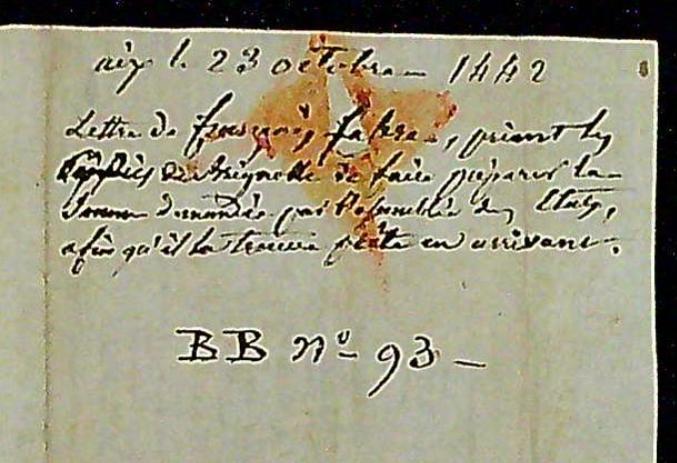 aix le 23 octobre 1442
Lettre de françois fabre, priant les
Syndics de Brignolle de faire préparer la
Somme demandée par l'assemblée des États,
afin qu'il la trouve prête en arrivant.
BB n° 93